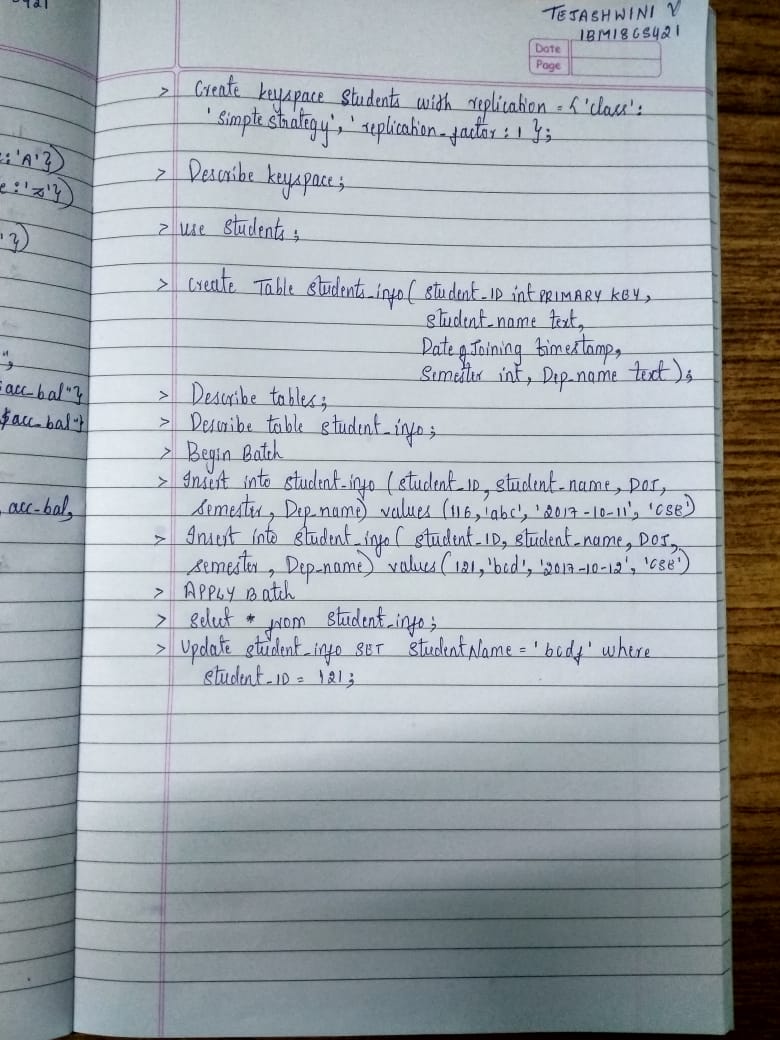 TEJASHWINI V
1BM18CS421
Date
Page
> Create keyspace Students with replication = { 'class':
'simplestrategy', 'replication_factor : 1 };
> Describe keyspace;
> use students;
> Create Table students_info( student_ID int PRIMARY KEY,
student_name text,
Date of Joining timestamp,
Semester int, Dep_name text);
> Describe tables;
> Describe table student_info;
> Begin Batch
> Insert into student_info (student_ID, student_name, DOJ,
semester, Dep_name) values (116, 'abc', '2017-10-11', 'CSE')
> Insert into student_info( student_ID, student_name, DOJ,
semester, Dep_name) values( 121, 'bcd', '2017-10-12', 'CSE')
> APPLY Batch
> Select * from student_info;
> Update student_info SET studentName = 'bcdf' where
student_ID = 121;
:'A'})
e:'z'})
'})
";
acc_bal"}
$acc_bal"}
acc-bal,